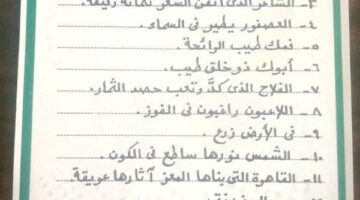 ٣- الشاعر الذي أتقن السفر لغاته رقيقة.
٤- العصفور يطير في السماء.
٥- فمك طيب الرائحة.
٦- أبوك ذو خلق طيب.
٧- الفلاح الذي كدَّ وتعب حصد الثمار.
٨- اللاعبون راغبون في الفوز.
٩- في الأرض زرع.
١٠- الشمس نورها ساطع في الكون.
١١- القاهرة التي بناها المعز آثارها عريقة.